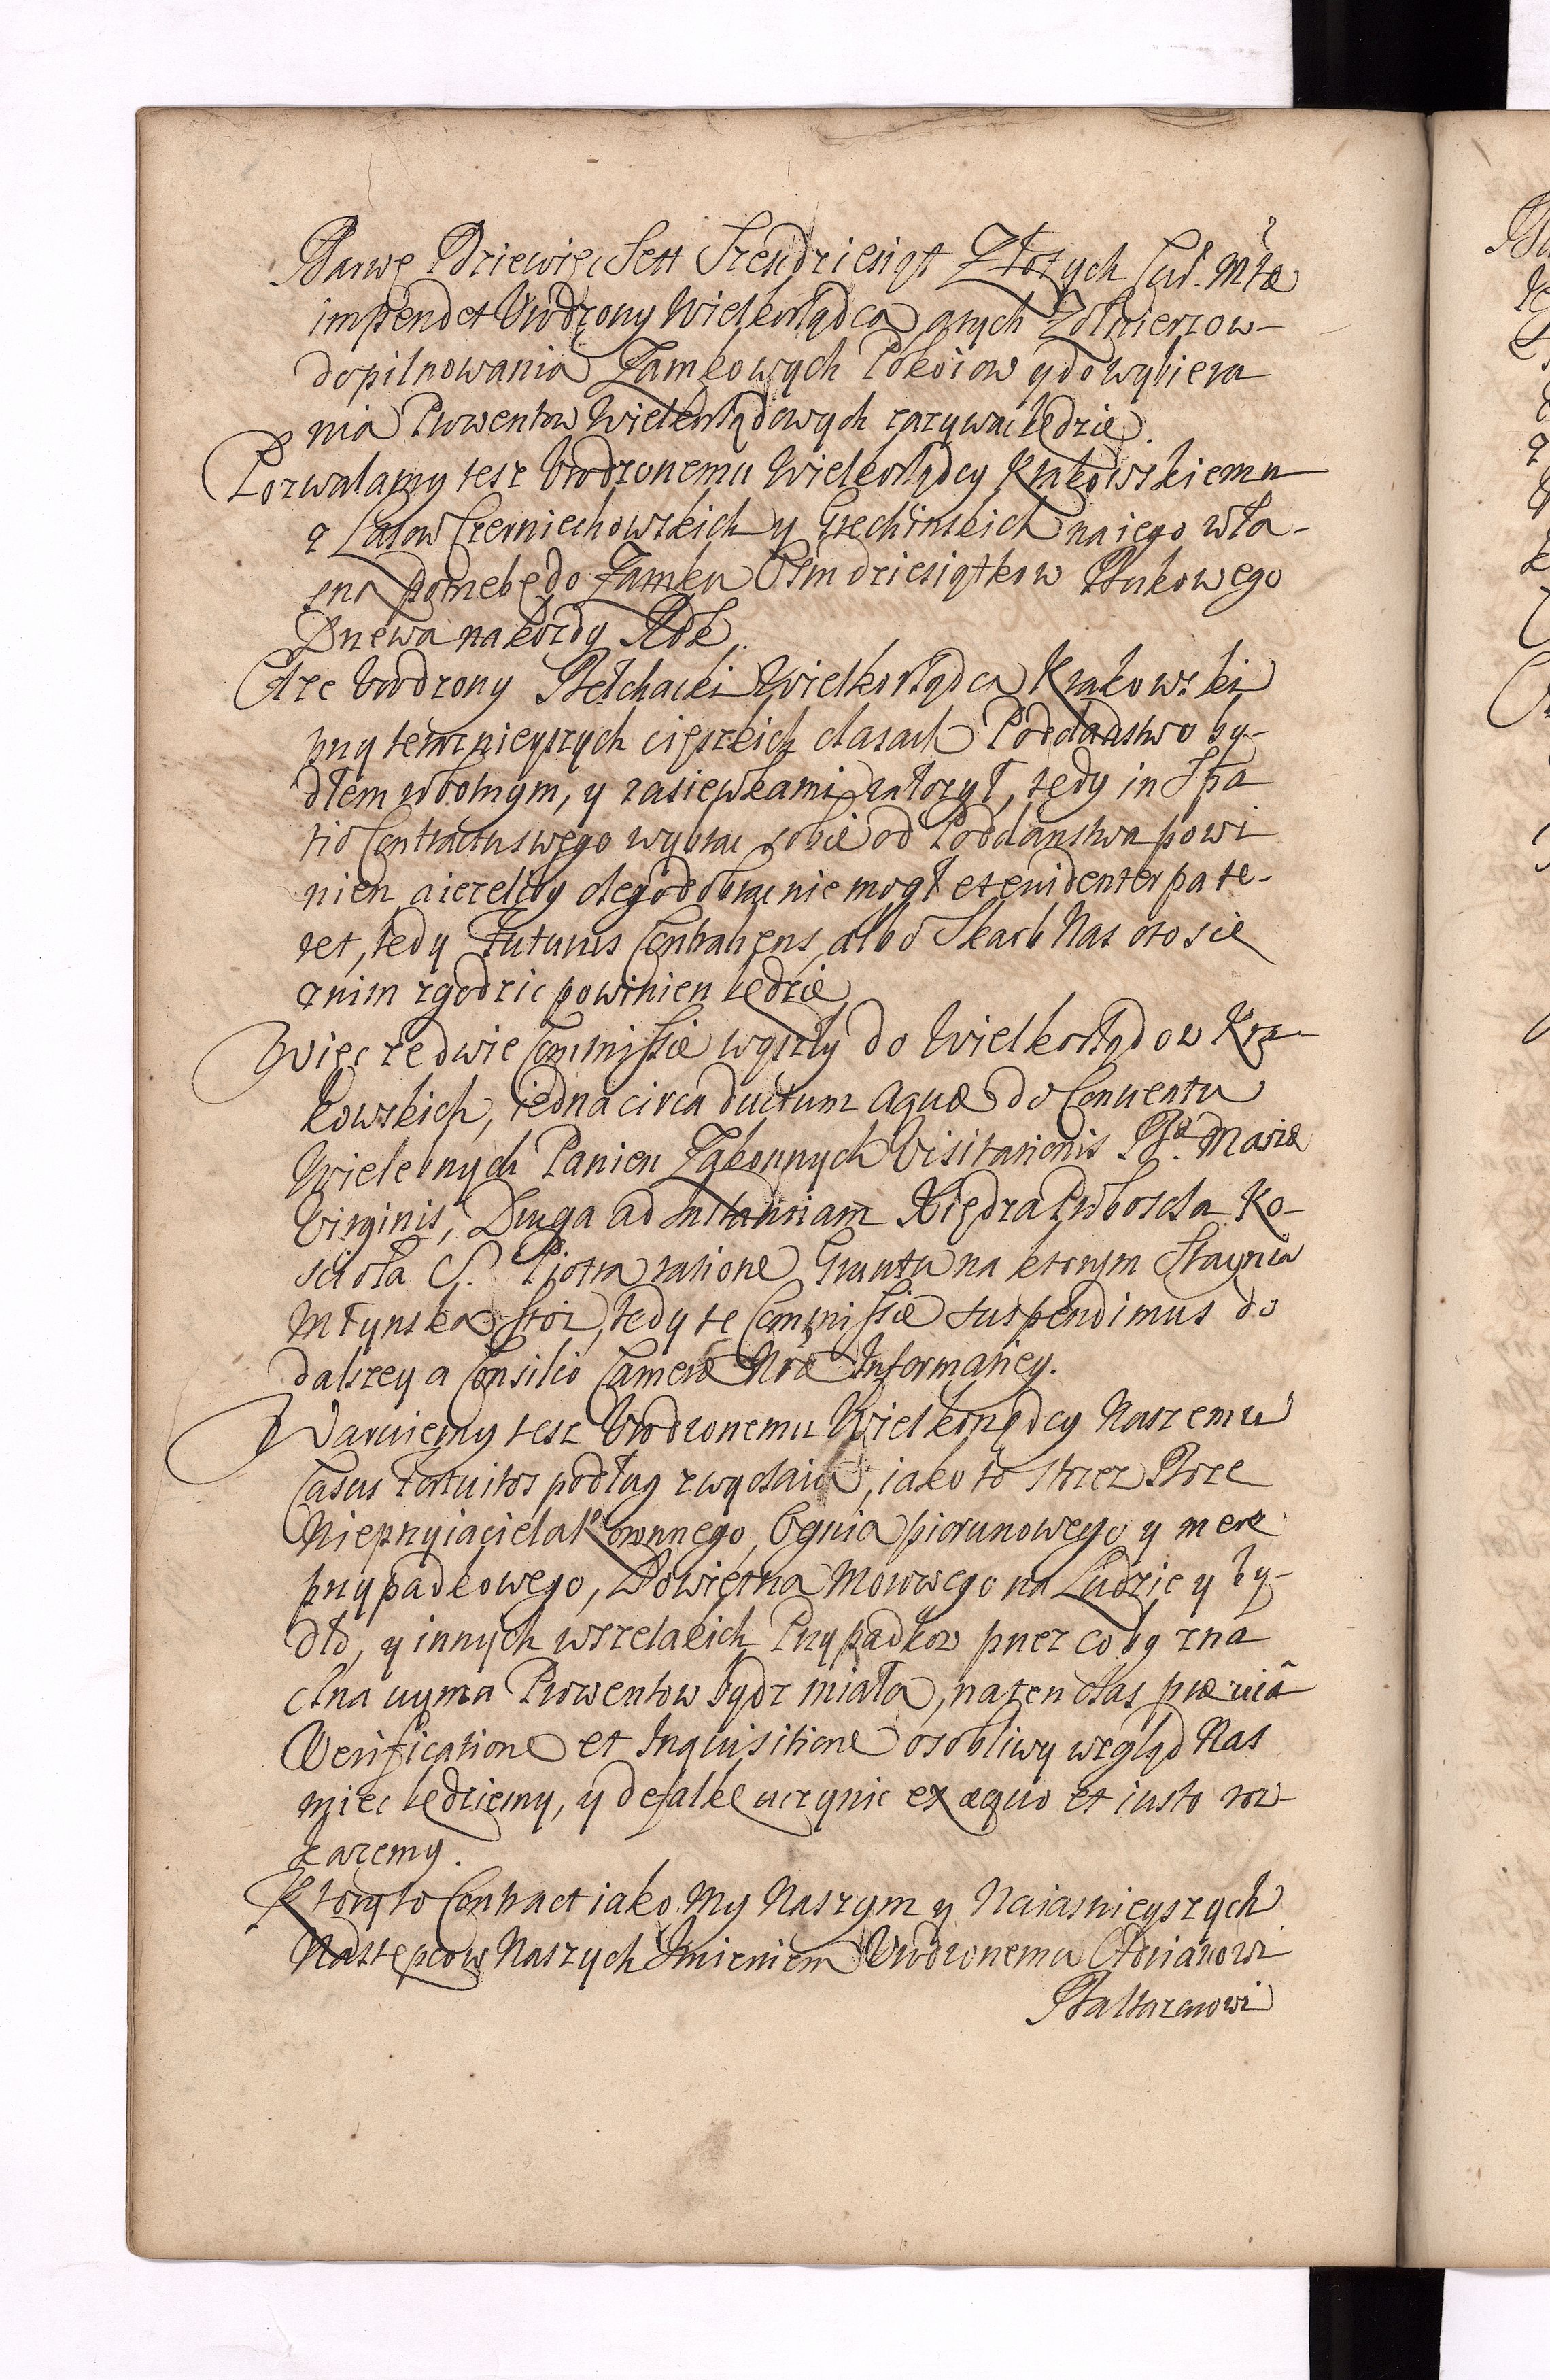 Barwę Dziewięc Sett Szescdziesiąt Złotych Cur. Mtæ
impendet Vrodzony Wielkorządca, ktorych Zołnierzow
do pilnowania Zamkowych Pokoiow y do wybiera
nia Prowentow Wielkorządowych zazywac będzie.
Pozwalamy tesz Vrodzonemu Wielkorządcy Krakowskiemu
z Lasow Czerniechowskich y Grechinskich na iego wła-
sną potrzebę do Zamku Osmdziesiątkow Bukowego
Drzewa na kozdy Rok.
A ze Vrodzony Bełchacki Wielkorządca Krakowski
przy teraznieyszych cięszkich czasach Poddanstwo by-
dłem robotnym, y zasiewkami załozył, tedy in Spa
tio Contractu swego wybrac sobie od Poddanstwa powi
nien, a iezeliby czego odebrac nie mogł et evidenter pate-
ret, tedy Futurus Contrahens, albo Skarb Nasz oto sie
z nim zgodzic powinien będzie.
Więc ze dwie Commissie wyszły do Wielkorządow Kra-
kowskich, iedna circa ductum aquæ do Conventu
Wielebnych Panien Zakonnych Visitationis Bæ. Mariæ
Virginis, Druga ad Instantiam Xiędza Proboscza Ko-
scioła S. Piotra ratione Gruntu na ktorym Staynia
Młynska stoi, tedy te Commissie suspendimus do
dalszey a Consilio Cameræ Nræ Informatiey.
Waruiemy tesz Vrodzonemu Wielkorządcy Naszemu
Casus fortuitos podług zwyczaiu, iako to strzesz Boze
Nieprzyiaciela koronnego, Ognia piorunowego y mere
przypadkowego, Powietrza Morowego na Ludzie y by-
dło, y innych wszelakich Przypadkow przez co by zna
czna uyma Prowentow bydz miała, na ten czas præviâ
Verificatione et Inquisitione osobliwy wzgląd Nasz
miec będziemy, y defalkę uczynic ex æquo et iusto roz-
kazemy.
Ktory to Contract iako My Naszym y Naiasnieyszych
Następcow Naszych Imieniem Vrodzonemu
Baltazarowi